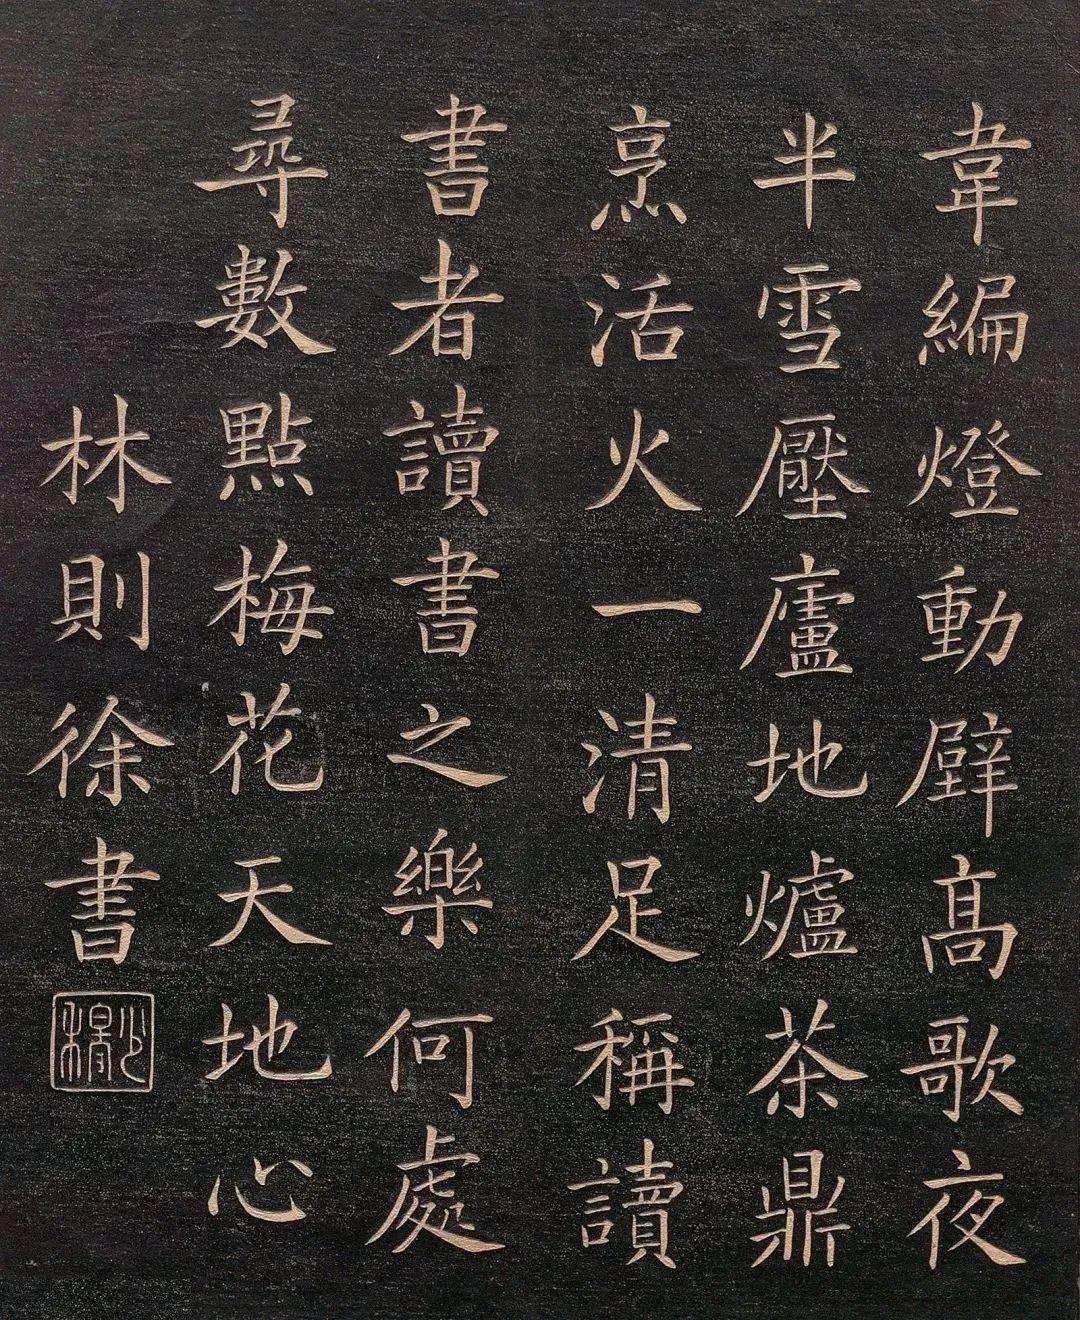 韋編燈動壁高歌夜
半雪壓廬地爐茶鼎
烹活火一清足稱讀
書者讀書之樂何處
尋數點梅花天地心
林則徐書
少穆